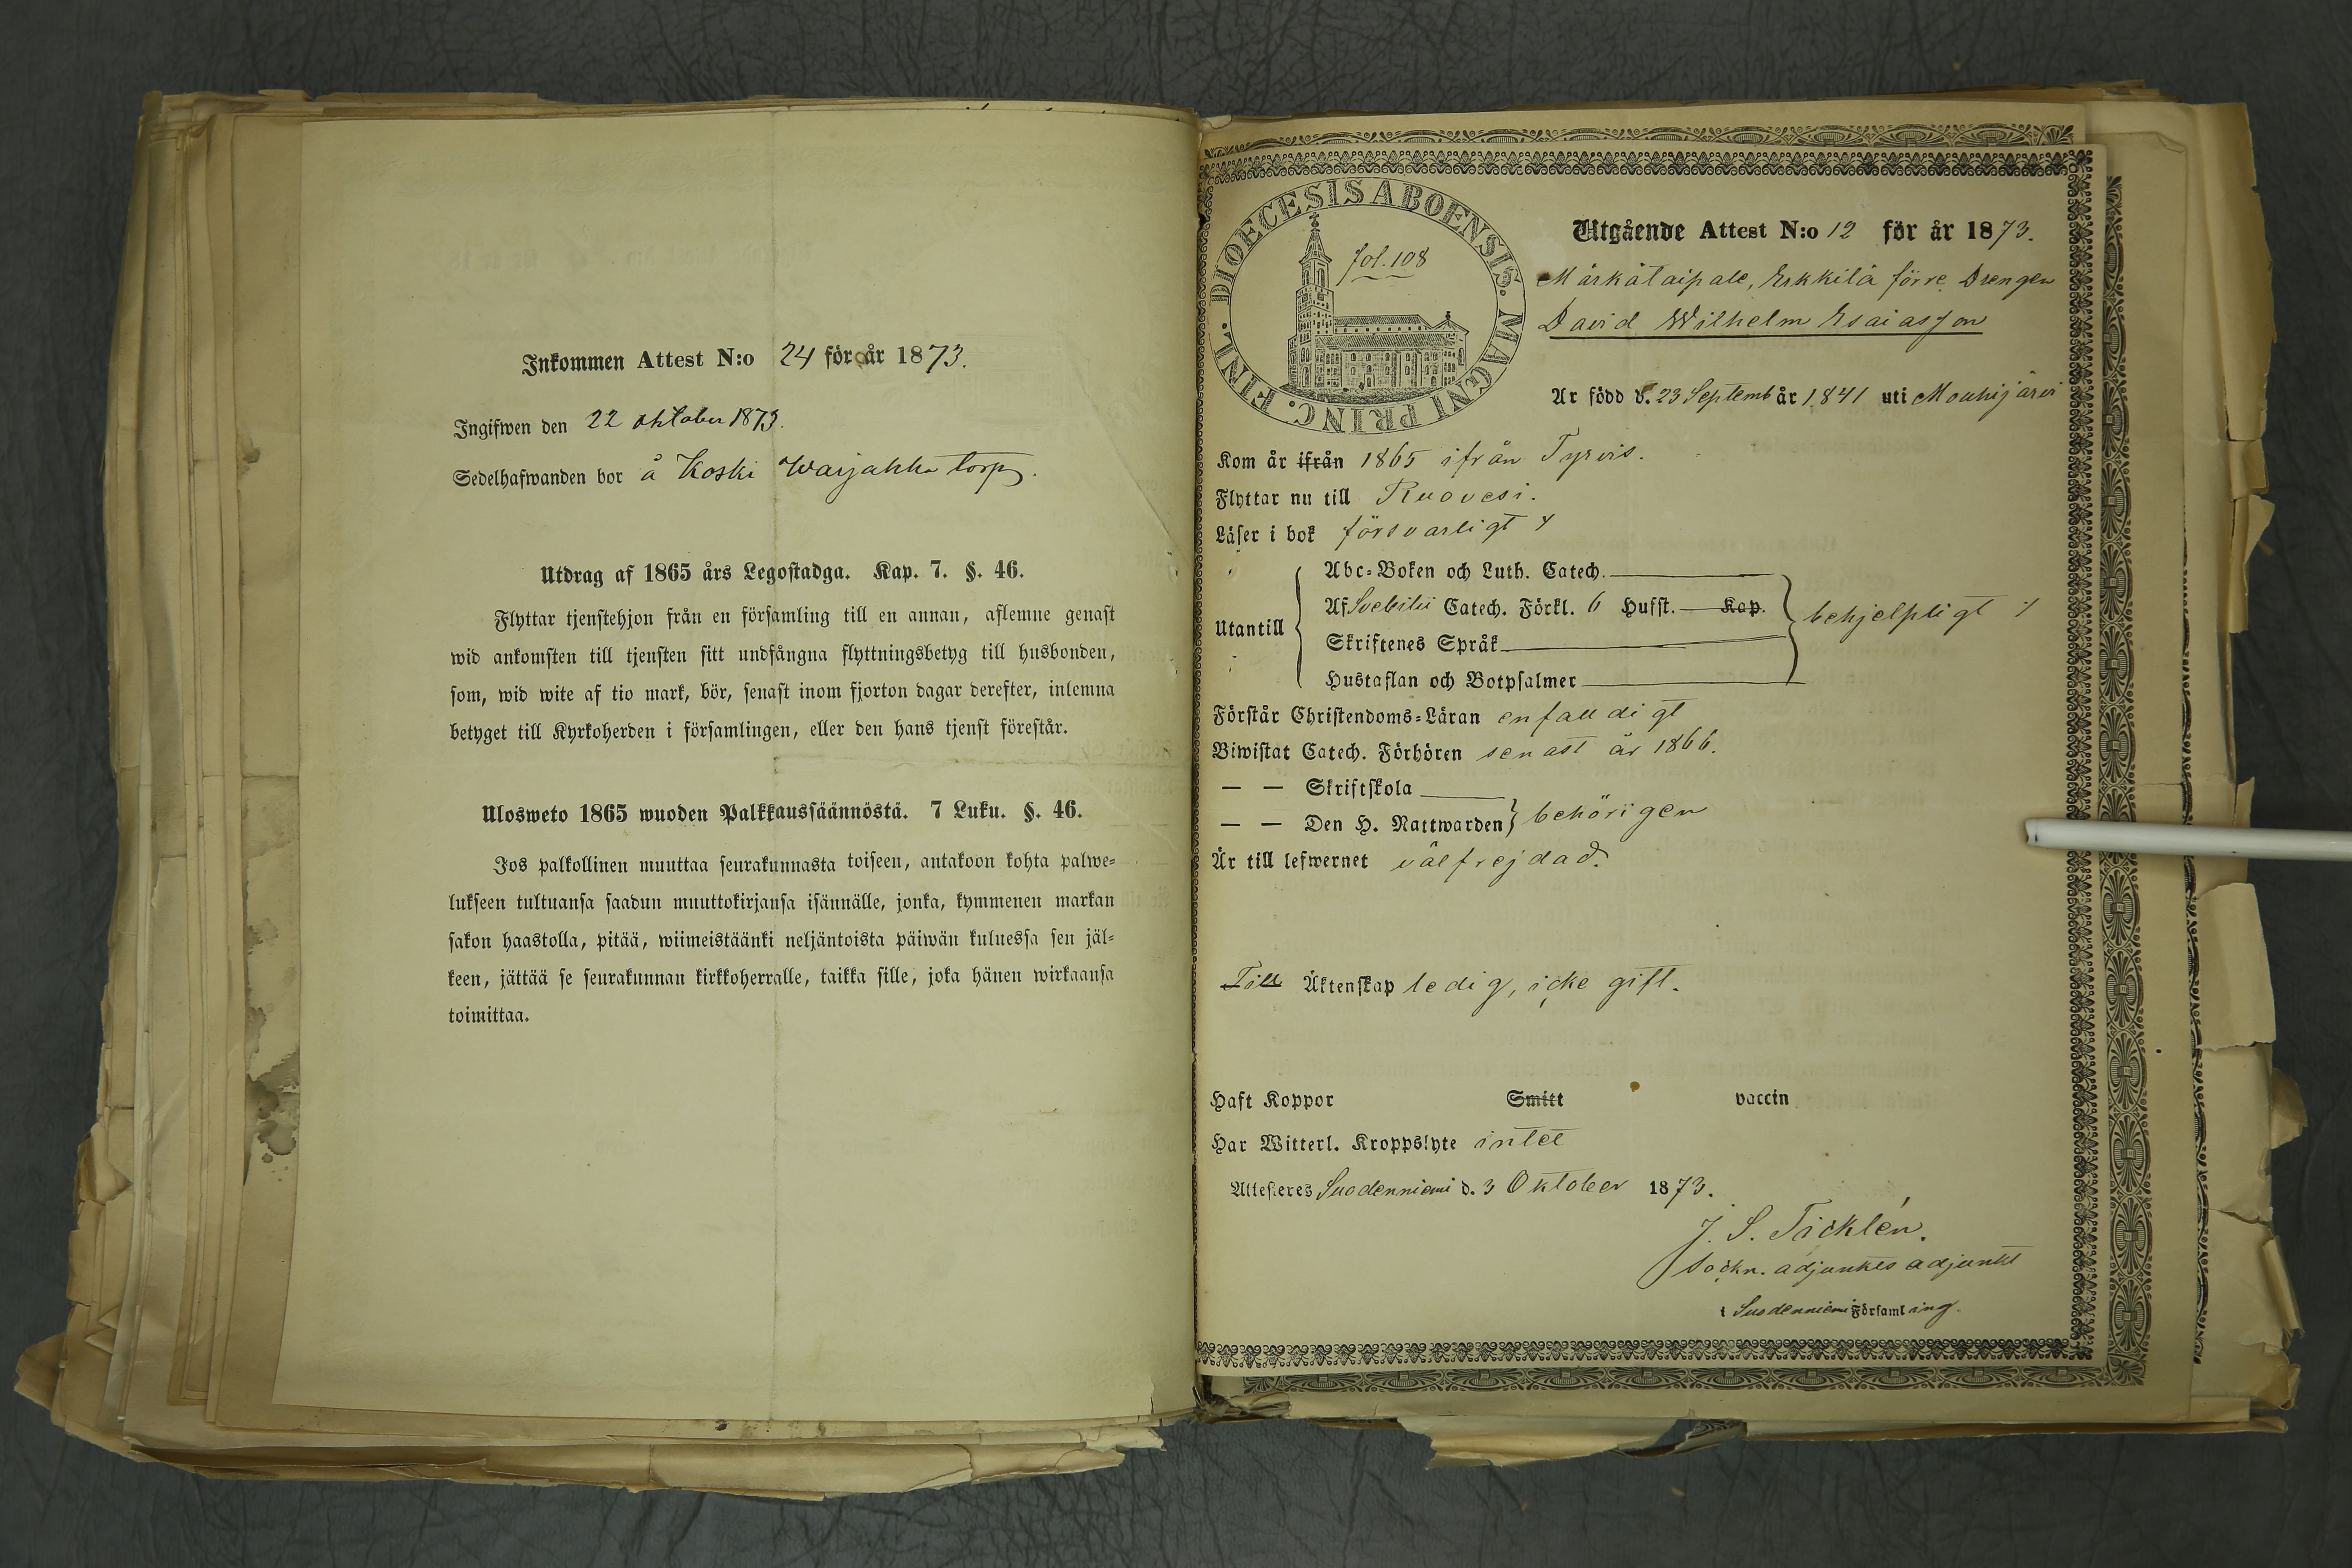 Inkommen Attest N:o 24 för år 1873.
Ingifwen den 22 oktober 1873.
Sedelhafwanden bor å Koski Warjakka torp.
Utdrag af 1865 års Legostadga. Kap. 7. §. 46.
Flyttar tjenstehjon från en församling till en annan, aflemne genast
wid ankomsten till tjensten sitt undfångna flyttningsbetyg till husbonden,
som, wid wite af tio mark, bör, senast inom fjorton dagar derefter, inlemna
betyget till Kyrkoherden i församlingen, eller den hans tjenst förestår.
Ulosweto 1865 wuoden Palkkaussäännöstä. 7 Luku. §. 46.
Jos palkollinen muuttaa seurakunnasta toiseen, antakoon kohta palwe=
lukseen tultuansa saadun muuttokirjansa isännälle, jonka, kymmenen markan
sakon haastolla, pitää, wiimeistäänki neljäntoista päiwän kuluessa sen jäl=
keen, jättää se seurakunnan kirkkoherralle, taikka sille, joka hänen wirkaansa
toimittaa.
DIOECESIS ABOENSIS. MAGNI PRINC. FINL.
fol. 108
Utgående Attest N:o 12 för år 1873.
Märkätaipale, Erkkilä förre Drengen
David Wilhelm Esaiasson
Är född d. 23 Septemb år 1841 uti Mouhijärvi
Kom år ifrån 1865 ifrån Tyrvis.
Flyttar nu till Ruovesi.
Läser i bok försvarligt
Utantill
Abc=Boken och Luth. Catech.
Af Svebilii Catech. Förkl. 6 Hufst. Kap.
Skriftenes Språk
Hustaflan och Botpsalmer
behjelpligt
Förstår Christendoms=Läran enfaldigt
Biwistat Catech. Förhören senast år 1866.
— — Skriftskola
— — Den H. Nattwarden
behörigen
Är till lefwernet välfrejdad.
Till Äktenskap ledig, icke gift.
Haft Koppor Smitt vaccin
Har Witterl. Kroppslyte intet
Attesteres Suodenniemi d. 3 Oktober 1873.
J. S. Täcklén.
Sockn. adjunkts adjunkt
i Suodenniemi Församling.